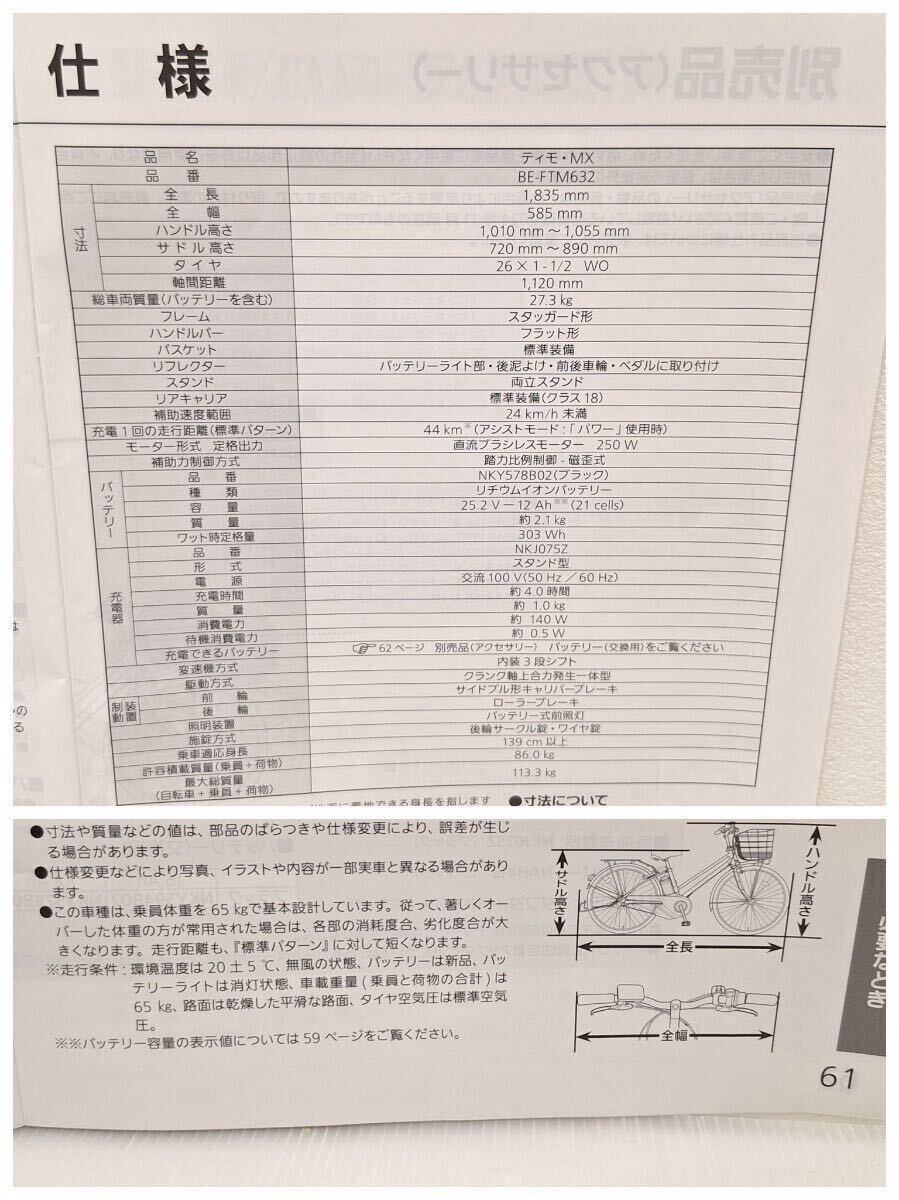 仕 様
品 名 ティモ・MX
品 番 BE-FTM632
寸法
全 長 1,835 mm
全 幅 585 mm
ハンドル高さ 1,010 mm 〜 1,055 mm
サドル高さ 720 mm 〜 890 mm
タイヤ 26 × 1-1/2 WO
軸間距離 1,120 mm
総車両質量(バッテリーを含む) 27.3 kg
フレーム スタッガード形
ハンドルバー フラット形
バスケット 標準装備
リフレクター バッテリーライト部・後泥よけ・前後車輪・ペダルに取り付け
スタンド 両立スタンド
リアキャリア 標準装備(クラス18)
補助速度範囲 24 km/h 未満
充電1回の走行距離(標準パターン) 44 km※(アシストモード:「パワー」使用時)
モーター形式 定格出力 直流ブラシレスモーター 250 W
補助力制御方式 踏力比例制御 - 磁歪式
バッテリー
品 番 NKY578B02(ブラック)
種 類 リチウムイオンバッテリー
容 量 25.2 V − 12 Ah※※(21 cells)
質 量 約 2.1 kg
ワット時定格量 303 Wh
充電器
品 番 NKJ075Z
形 式 スタンド型
電 源 交流 100 V(50 Hz / 60 Hz)
充電時間 約 4.0 時間
質 量 約 1.0 kg
消費電力 約 140 W
待機消費電力 約 0.5 W
充電できるバッテリー ☞ 62ページ 別売品(アクセサリー) バッテリー(交換用)をご覧ください
変速機方式 内装3段シフト
駆動方式 クランク軸上合力発生一体型
制動装置
前 輪 サイドプル形キャリパーブレーキ
後 輪 ローラーブレーキ
照明装置 バッテリー式前照灯
施錠方式 後輪サークル錠・ワイヤ錠
乗車適応身長 139 cm 以上
許容積載質量(乗員+荷物) 86.0 kg
最大総質量
(自転車+乗員+荷物) 113.3 kg
に着地できる身長を指します
●寸法について
●寸法や質量などの値は、部品のばらつきや仕様変更により、誤差が生じ
る場合があります。
●仕様変更などにより写真、イラストや内容が一部実車と異なる場合があり
ます。
●この車種は、乗員体重を 65 kgで基本設計しています。従って、著しくオー
バーした体重の方が常用された場合は、各部の消耗度合、劣化度合が大
きくなります。走行距離も、『標準パターン』に対して短くなります。
※走行条件:環境温度は 20 ± 5 ℃、無風の状態、バッテリーは新品、バッ
テリーライトは消灯状態、車載重量(乗員と荷物の合計)は
65 kg、路面は乾燥した平滑な路面、タイヤ空気圧は標準空気
圧。
※※バッテリー容量の表示値については 59 ページをご覧ください。
サドル高さ
ハンドル高さ
全長
全幅
必要なとき
61